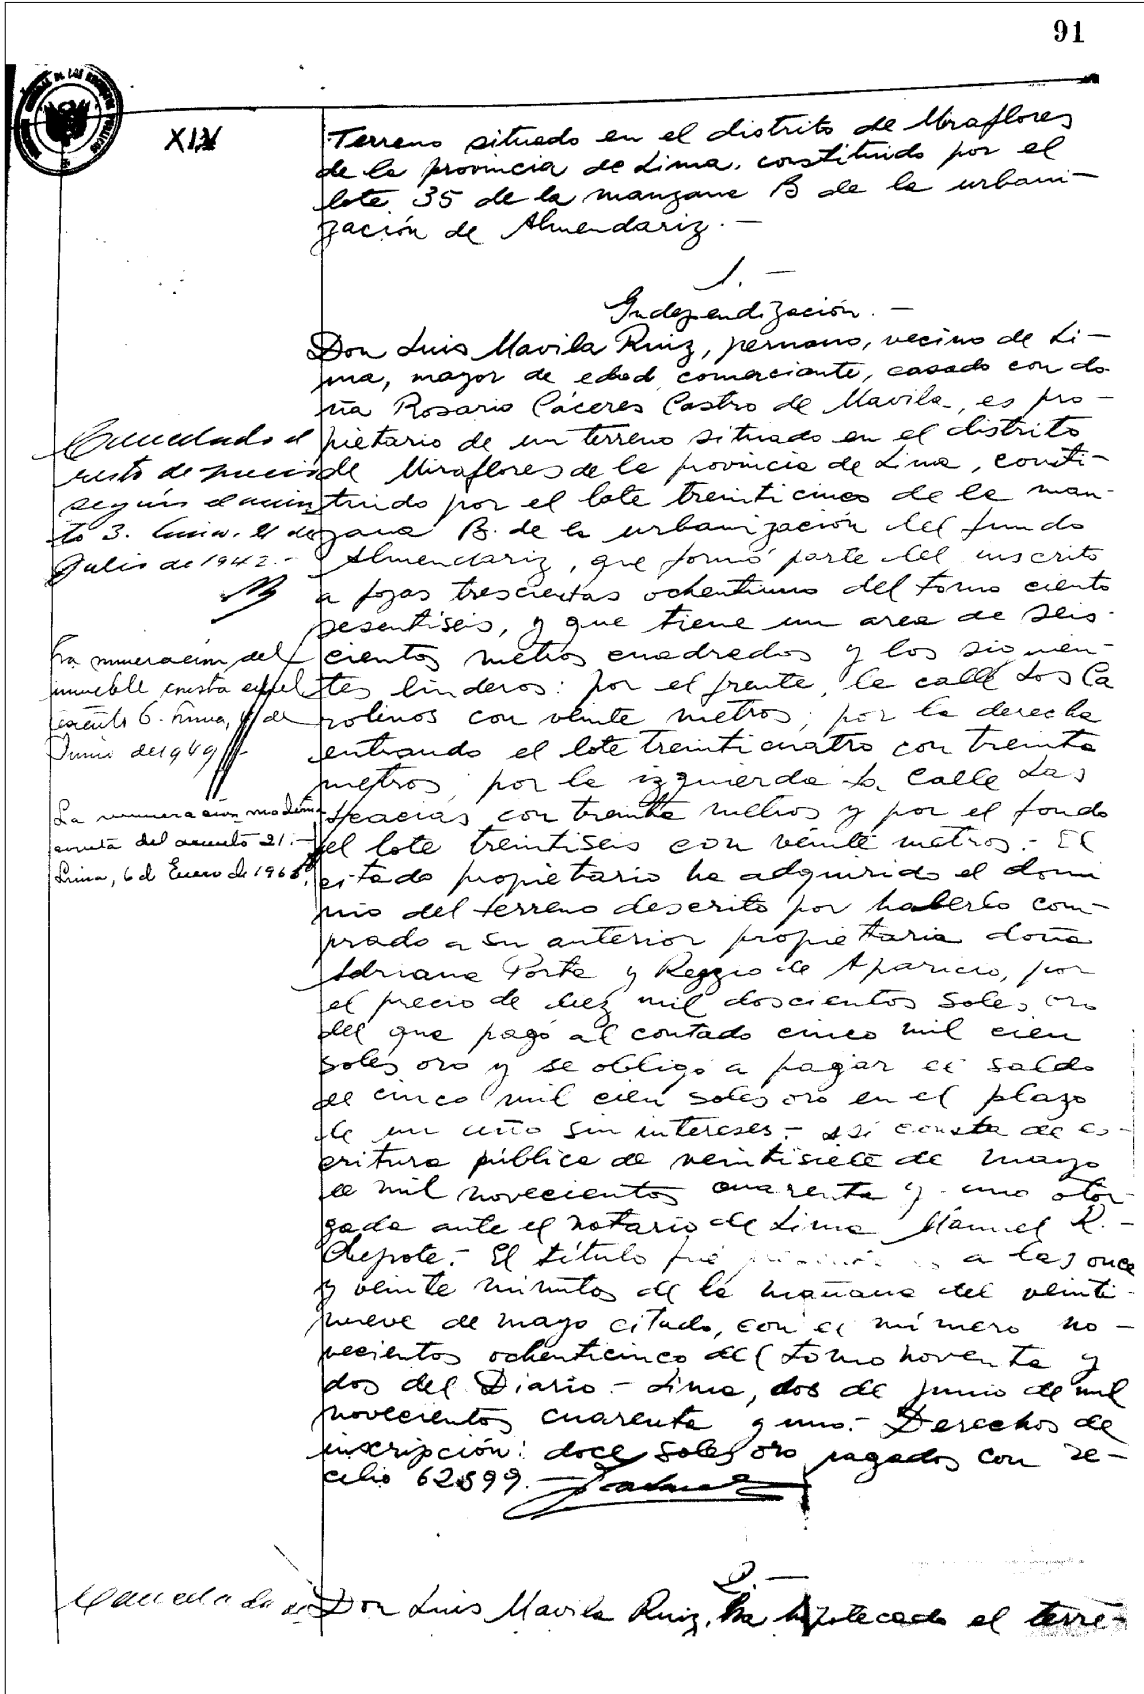 91
XIV
Terreno situado en el distrito de Miraflores
de la provincia de Lima, constituido por el
lote 35 de la manzana B de la urbani-
zación de Almendariz.-
1.-
Independización.-
Don Luis Mavila Ruiz, peruano, vecino de Li-
ma, mayor de edad, comerciante, casado con do
ña Rosario Cáceres Castro de Mavila, es pro-
pietario de un terreno situado en el distrito
de Miraflores de la provincia de Lima, consti-
tuido por el lote treinticinco de la man-
zana B. de la urbanización del fundo
Almendariz, que formó parte del inscrito
a fojas trescientas ochentiuno del tomo ciento
sesentiseis, y que tiene un area de seis-
cientos metros cuadrados y los siguien-
tes linderos: por el frente, la calle Los Ca
rolinos con veinte metros; por la derecha
entrando el lote treinticuatro con treinta
metros, por la izquierda la Calle Las
Acacias con treinta metros y por el fondo
el lote treintiseis con veinte metros.- El
citado propietario ha adquirido el domi
nio del terreno descrito por haberlo com-
prado a su anterior propietaria doña
Adriana Porta y Reggio de Aparicio, por
el precio de diez mil doscientos soles oro
del que pagó al contado cinco mil cien
soles oro y se obligó a pagar el saldo
de cinco mil cien soles oro en el plazo
de un año sin intereses.- Asi consta de es-
critura pública de veintisiete de mayo
de mil novecientos cuarenta y uno otor
gada ante el notario de Lima Manuel R.-
Chepote.- El título fué a las once
y veinte minutos de la mañana del veinti-
nueve de mayo citado, con el número no-
vecientos ochenticinco del tomo noventa y
dos del Diario.- Lima, dos de junio de mil
novecientos cuarenta y uno.- Derechos de
inscripción: doce soles oro pagados con re-
cibo 62899.-
Cancelado el
resto de precio
según el asien
to 3. Lima, 21 de
Julio de 1942.-
La numeración del
inmueble consta en el
asiento 6. Lima, de
Junio de 1949
La numeración moderna
consta del asiento 21.-
Lima, 6 de Enero de 1968.
2.-
Cancelada
Don Luis Mavila Ruiz, ha hipotecado el terre-